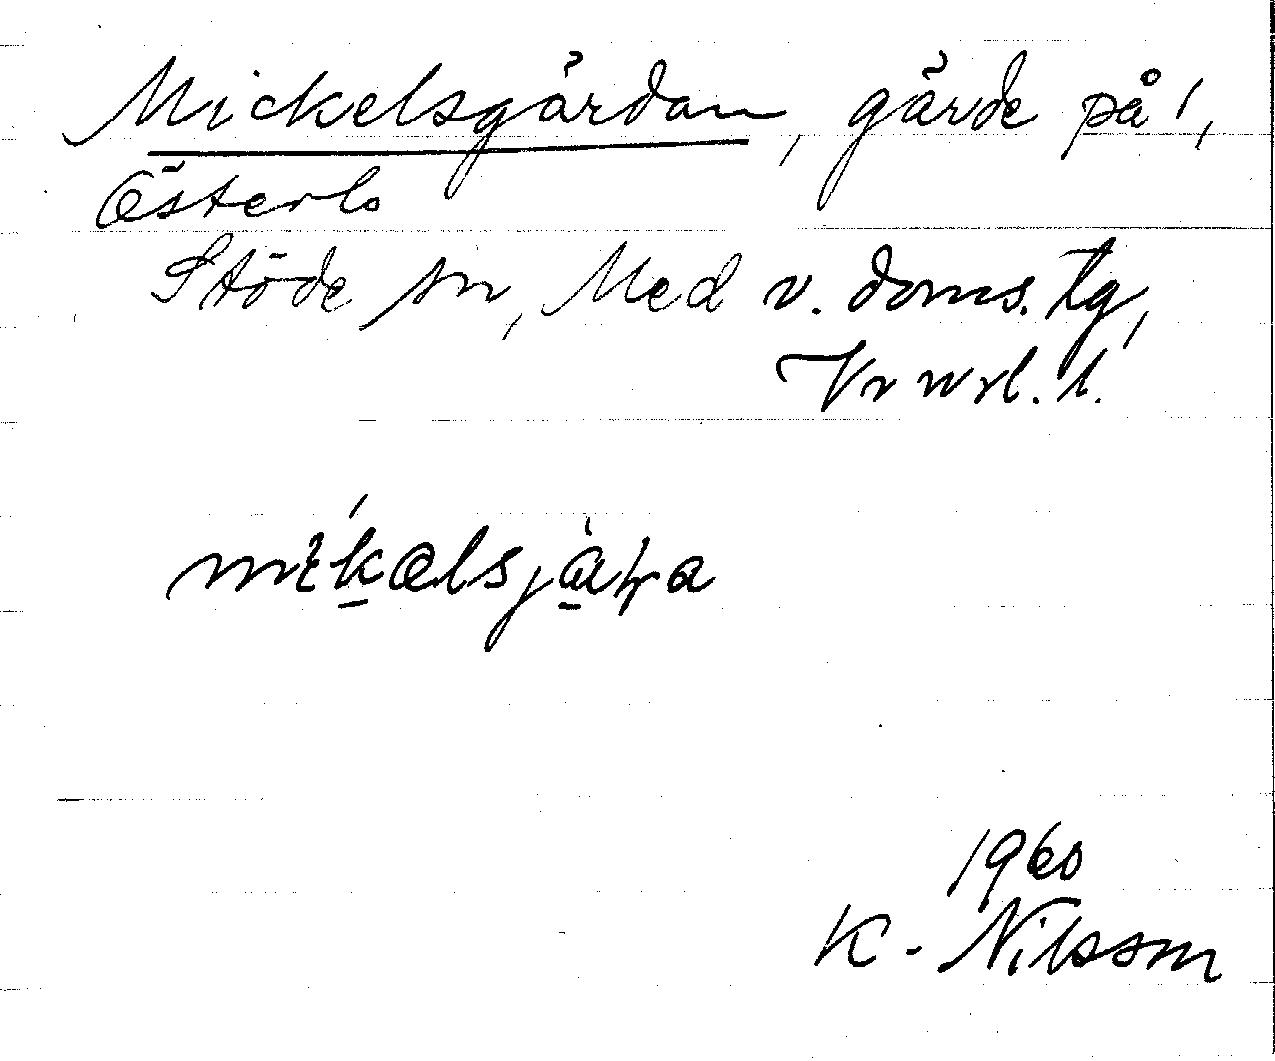 Mickelsgärdan, gärde på 1,
Österlo
Stöde sn, Med v. doms. tg,
Vrnrl. l.
1960
K. Nilsson